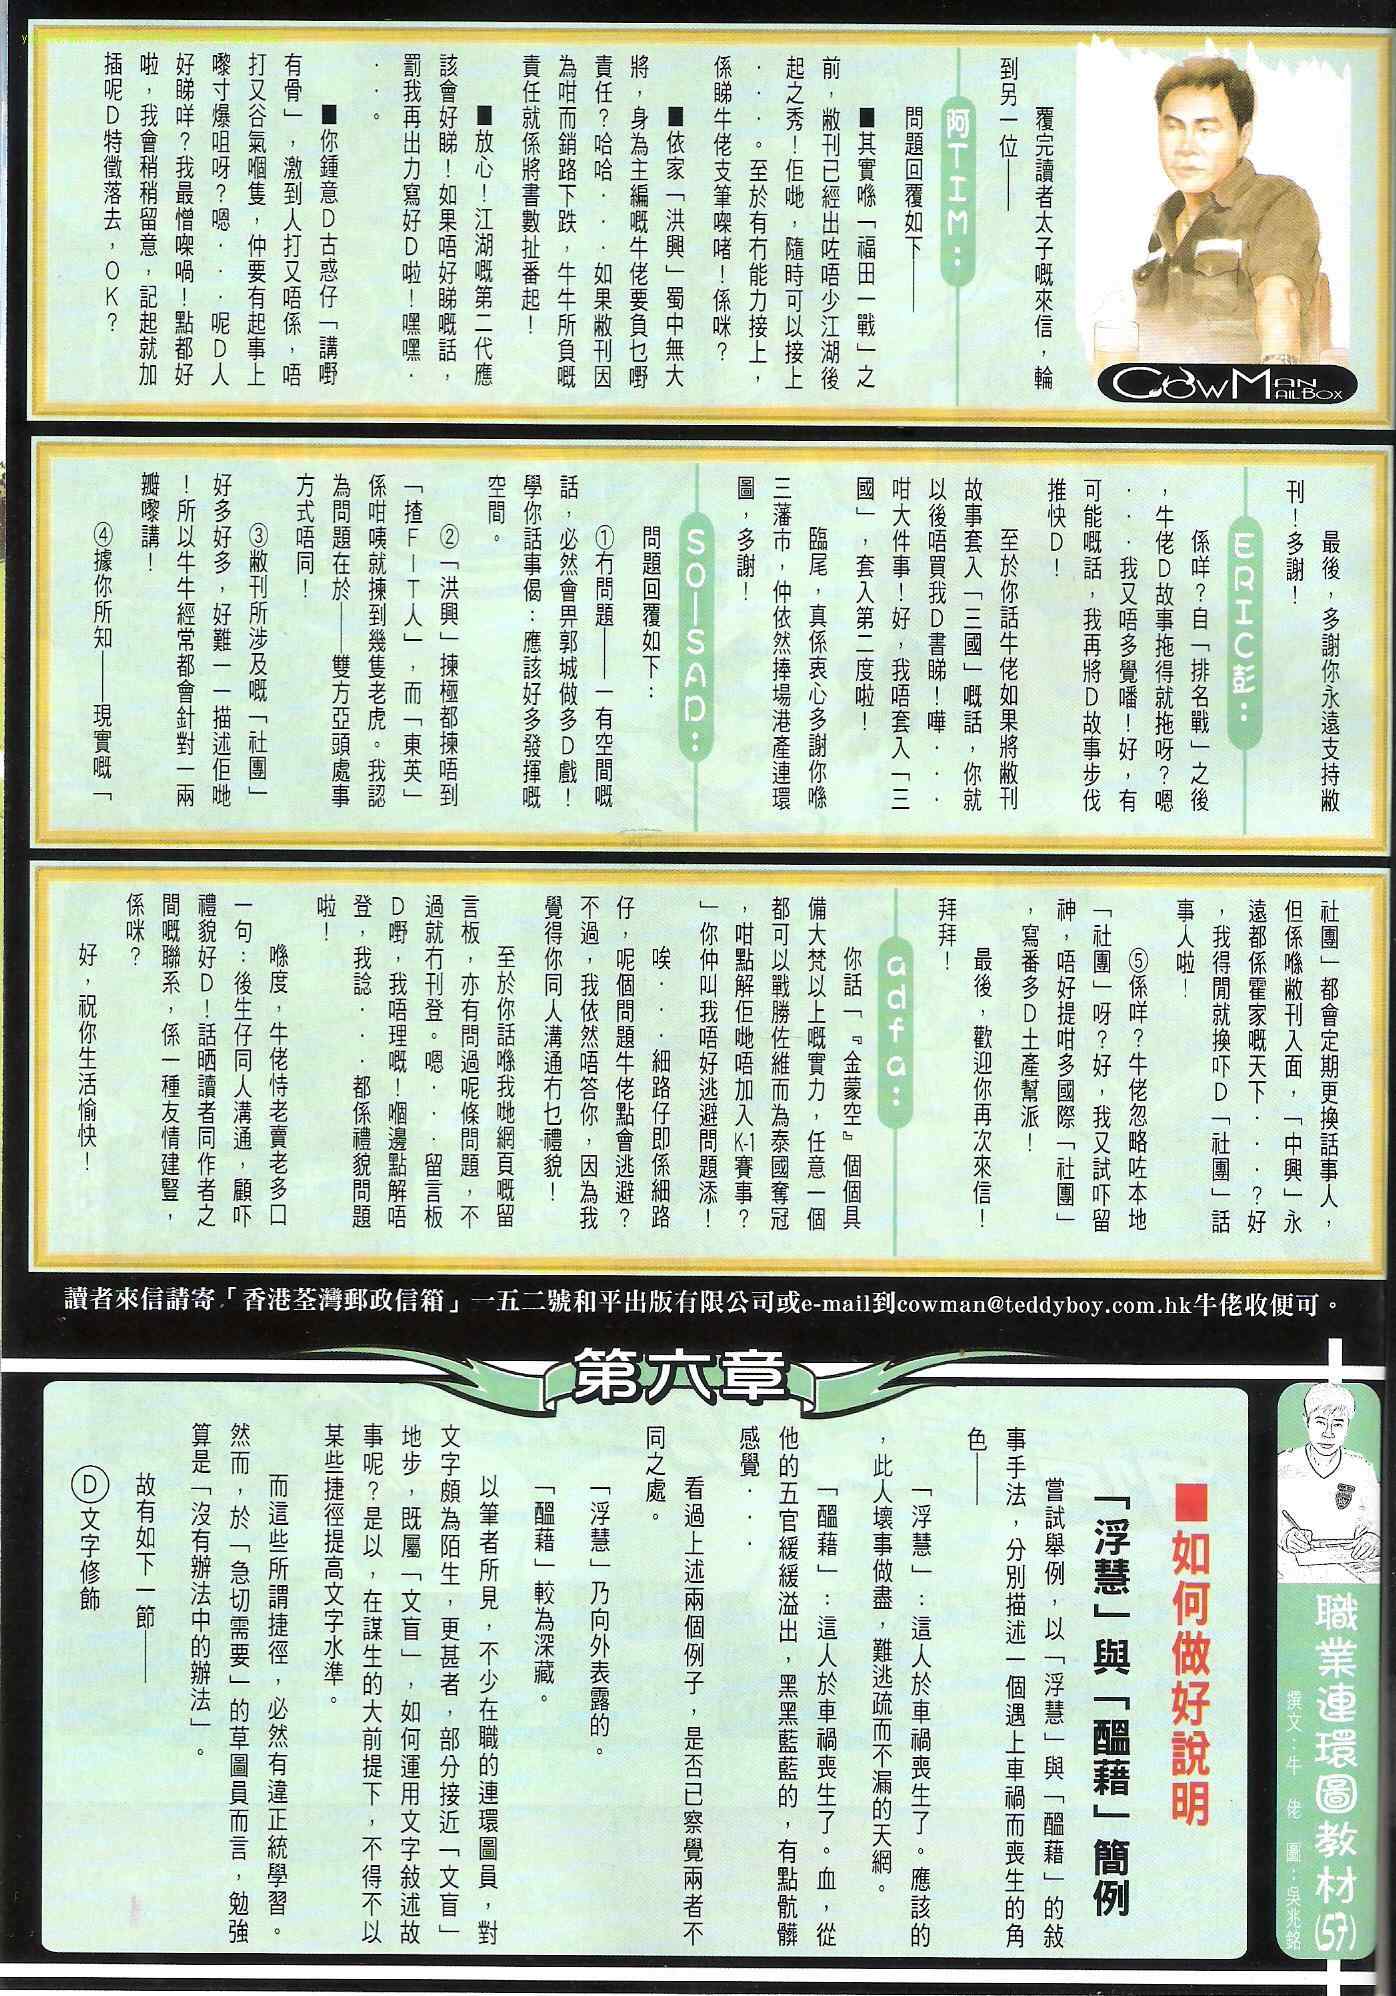 COWMAN MAILBOX
覆完讀者太子嘅來信，輪
到另一位——
阿TIM：
問題回覆如下——
■其實喺「福田一戰」之
前，敝刊已經出咗唔少江湖後
起之秀！佢哋，隨時可以接上
．．．。至於有冇能力接上，
係睇牛佬支筆㗎啫！係咪？
■依家「洪興」蜀中無大
將，身為主編嘅牛佬要負乜嘢
責任？哈哈．．．如果敝刊因
為咁而銷路下跌，牛牛所負嘅
責任就係將書數扯番起！
■放心！江湖嘅第二代應
該會好睇！如果唔好睇嘅話，
罰我再出力寫好D啦！嘿嘿．
．．。
■你鍾意D古惑仔「講嘢
有骨」，激到人打又唔係，唔
打又谷氣嗰隻，仲要有起事上
嚟寸爆咀呀？嗯．．．呢D人
好睇咩？我最憎㗎喎！點都好
啦，我會稍稍留意，記起就加
插呢D特徵落去，OK？
最後，多謝你永遠支持敝
刊！多謝！
ERIC彭：
係咩？自「排名戰」之後
，牛佬D故事拖得就拖呀？嗯
．．．我又唔多覺噃！好，有
可能嘅話，我再將D故事步伐
推快D！
至於你話牛佬如果將敝刊
故事套入「三國」嘅話，你就
以後唔買我D書睇！嘩．．．
咁大件事！好，我唔套入「三
國」，套入第二度啦！
臨尾，真係衷心多謝你喺
三藩市，仲依然捧場港產連環
圖，多謝！
SO—SAD：
問題回覆如下：
①冇問題——一有空間嘅
話，必然會畀郭城做多D戲！
學你話事偈：應該好多發揮嘅
空間。
②「洪興」揀極都揀唔到
「揸FIT人」，而「東英」
係咁咦就揀到幾隻老虎。我認
為問題在於——雙方亞頭處事
方式唔同！
③敝刊所涉及嘅「社團」
好多好多，好難一一描述佢哋
！所以牛牛經常都會針對一兩
瓣嚟講！
④據你所知——現實嘅「
社團」都會定期更換話事人，
但係喺敝刊入面，「中興」永
遠都係霍家嘅天下．．．？好
，我得閒就換吓D「社團」話
事人啦！
⑤係咩？牛佬忽略咗本地
「社團」呀？好，我又試吓留
神，唔好提咁多國際「社團」
，寫番多D土產幫派！
最後，歡迎你再次來信！
拜拜！
adfa：
你話「『金蒙空』個個具
備大梵以上嘅實力，任意一個
都可以戰勝佐維而為泰國奪冠
，咁點解佢哋唔加入K-1賽事？
」你仲叫我唔好逃避問題添！
唉．．．細路仔即係細路
仔，呢個問題牛佬點會逃避？
不過，我依然唔答你，因為我
覺得你同人溝通冇乜禮貌！
至於你話喺我哋網頁嘅留
言板，亦有問過呢條問題，不
過就冇刊登。嗯．．．留言板
D嘢，我唔理嘅！嗰邊點解唔
登，我諗．．．都係禮貌問題
啦！
喺度，牛佬恃老賣老多口
一句：後生仔同人溝通，顧吓
禮貌好D！話晒讀者同作者之
間嘅聯系，係一種友情建豎，
係咪？
好，祝你生活愉快！
讀者來信請寄「香港荃灣郵政信箱」一五二號和平出版有限公司或e-mail到cowman@teddyboy.com.hk牛佬收便可。
職業連環圖教材(57)
撰文：牛佬 圖：吳兆銘
第六章
■如何做好說明
「浮慧」與「醞藉」簡例
嘗試舉例，以「浮慧」與「醞藉」的敍
事手法，分別描述一個遇上車禍而喪生的角
色——
「浮慧」：這人於車禍喪生了。應該的
，此人壞事做盡，難逃疏而不漏的天網。
「醞藉」：這人於車禍喪生了。血，從
他的五官緩緩溢出，黑黑藍藍的，有點骯髒
感覺．．．
看過上述兩個例子，是否已察覺兩者不
同之處。
「浮慧」乃向外表露的。
「醞藉」較為深藏。
以筆者所見，不少在職的連環圖員，對
文字頗為陌生，更甚者，部分接近「文盲」
地步，既屬「文盲」，如何運用文字敍述故
事呢？是以，在謀生的大前提下，不得不以
某些捷徑提高文字水準。
而這些所謂捷徑，必然有違正統學習。
然而，於「急切需要」的草圖員而言，勉強
算是「沒有辦法中的辦法」。
故有如下一節——
Ⓓ文字修飾